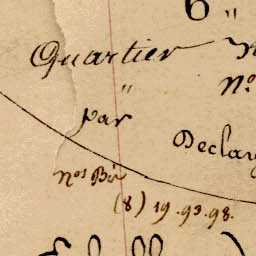 6 "
Quartier
"
N°
par
Declar
nos Bis
(8) 19. 93. 98.